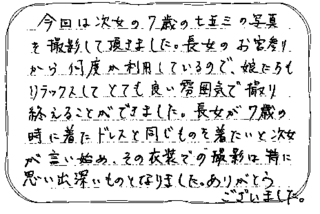 今回は次女の7歳の七五三の写真
を撮影して頂きました。長女のお宮参り
から何度か利用しているので、娘たちも
リラックスしてとても良い雰囲気で撮り
終えることができました。長女が7歳の
時に着たドレスと同じものを着たいと次女
が言い始め、その衣装での撮影は特に
思い出深いものとなりました。ありがとう
ございました。